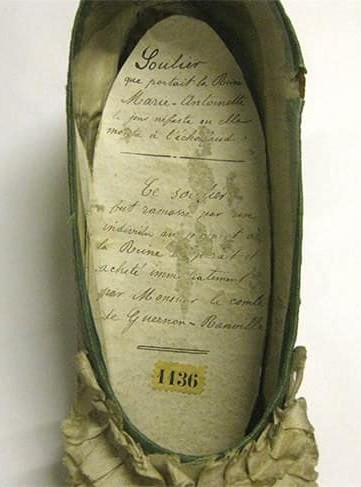 Soulier
que portait la Reine
Marie-Antoinette
le jour néfaste où elle
monta à l'échafaud.
Ce soulier
fut ramassé par un
individu au moment où
la Reine le perdit et
acheté immédiatement
par Monsieur le comte
de Guernon-Ranville
1136